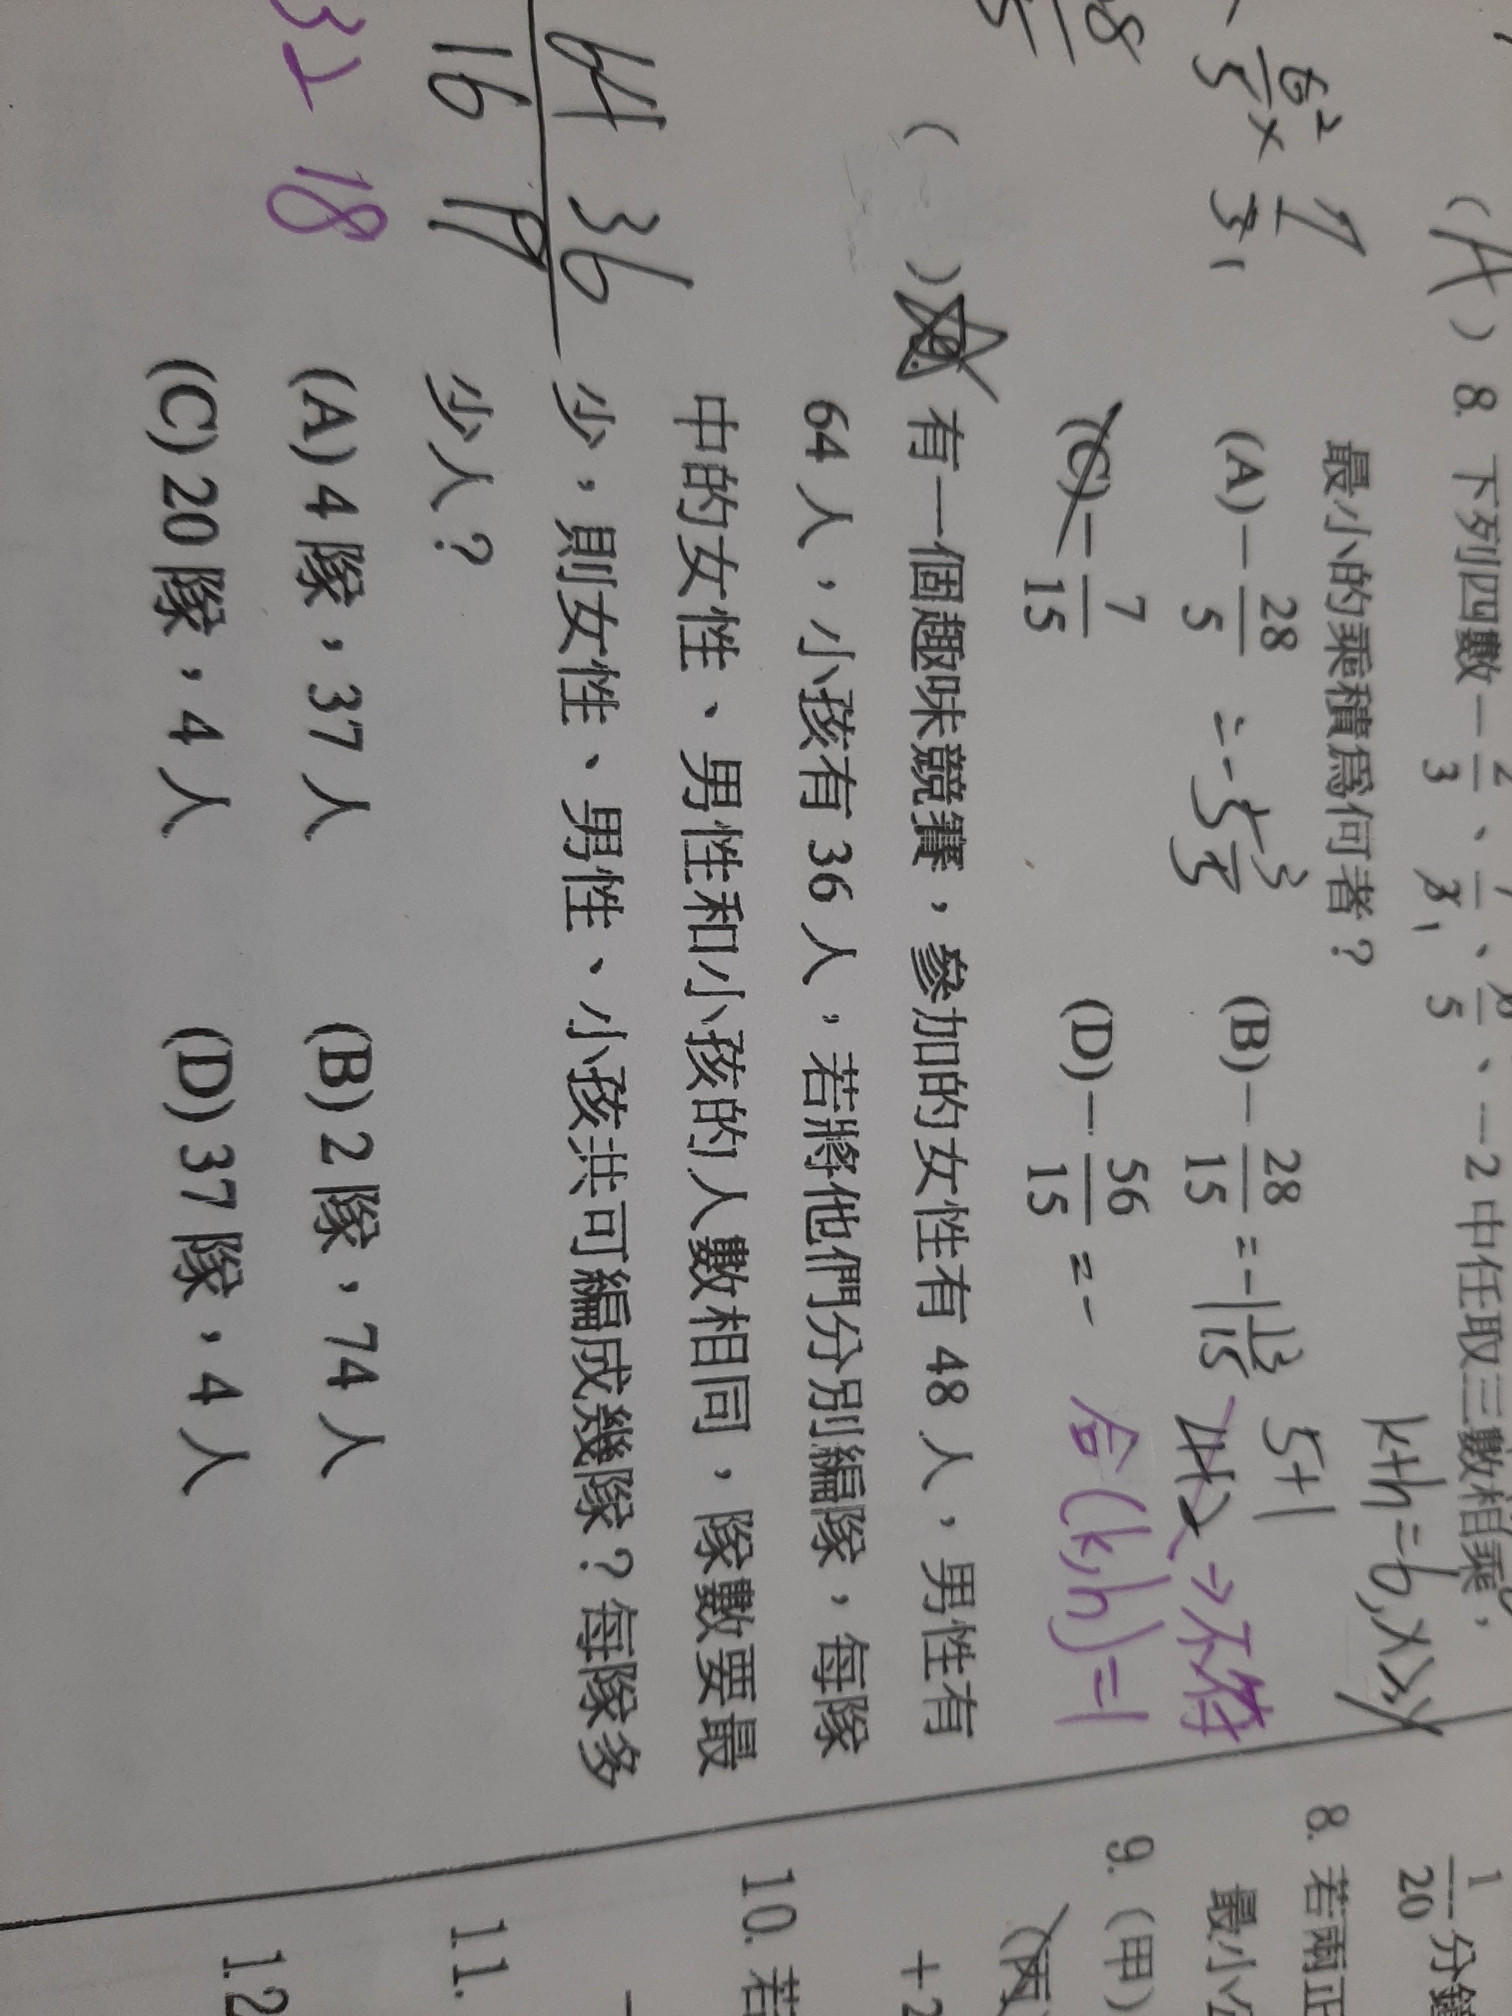 (A) 8. 下列四數－2/3、、/5、－2 中任取三數相乘，
最小的乘積爲何者？
(A)－28/5 = -5 3/5 (B)－28/15 = -1 13/15
(C)－7/15 (D)－56/15 = -
k+h=6, x>y
5+1
4+2 →不符
合 (k,h)=1
( ) 有一個趣味競賽，參加的女性有 48 人，男性有
64 人，小孩有 36 人，若將他們分別編隊，每隊
中的女性、男性和小孩的人數相同，隊數要最
少，則女性、男性、小孩共可編成幾隊？每隊多
少人？
(A) 4 隊，37 人 (B) 2 隊，74 人
(C) 20 隊，4 人 (D) 37 隊，4 人
64 36
16
32 18
1/20 分鐘
8. 若兩正
最小
9. (甲)
(丙)
+2
10. 若
11.
12